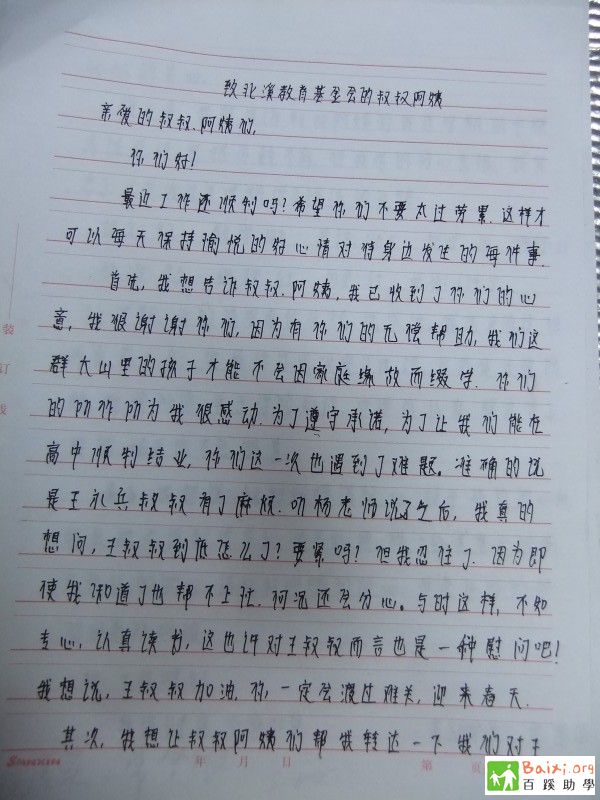 致北溪教育基金会的叔叔阿姨
亲爱的叔叔、阿姨们,
你们好!
最近工作还顺利吗?希望你们不要太过劳累.这样才
可以每天保持愉悦的好心情对待身边发生的每件事.
首先,我想告诉叔叔、阿姨,我已收到了你们的心
意,我很谢谢你们,因为有你们的无偿帮助,我们这
群大山里的孩子才能不会因家庭缘故而缀学.你们
的所作所为我很感动.为了遵守承诺,为了让我们能在
高中顺利结业,你们这一次也遇到了难题。准确的说
是王礼兵叔叔有了麻烦.听杨老师说了之后,我真的
想问,王叔叔到底怎么了?要紧吗?但我忍住了.因为即
使我知道了也帮不上忙.何况还会分心。与时这样,不如
专心,认真读书,这也许对王叔叔而言也是一种慰问吧!
我想说,王叔叔加油,你,一定会渡过难关,迎来春天.
其次,我想让叔叔阿姨们帮我转达一下我们对于
装
订
线
SANXIN
年 月 日
第 页
Baixi.org
百蹊助學